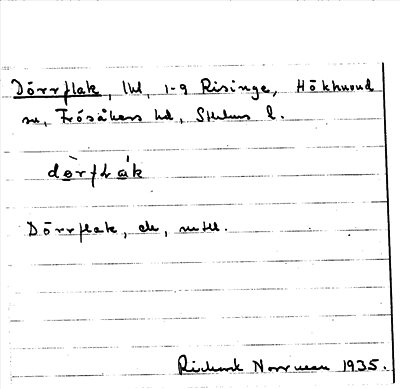 Dörrflak, lhl, 1-9 Risinge, Hökhuvud
sn, Frösåkers hd, Sthlms l.
dørflak
Dörrflak, ek, mtll.
Richard Norrman 1935.